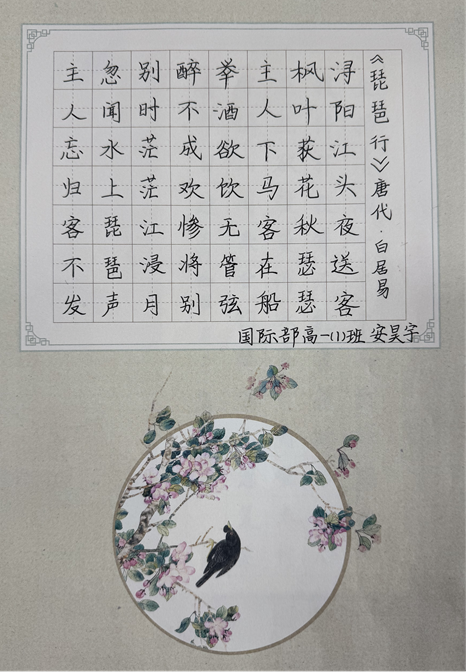 《琵琶行》唐代·白居易
浔阳江头夜送客
枫叶荻花秋瑟瑟
主人下马客在船
举酒欲饮无管弦
醉不成欢惨将别
别时茫茫江浸月
忽闻水上琵琶声
主人忘归客不发
国际部高一(1)班 安昊宇